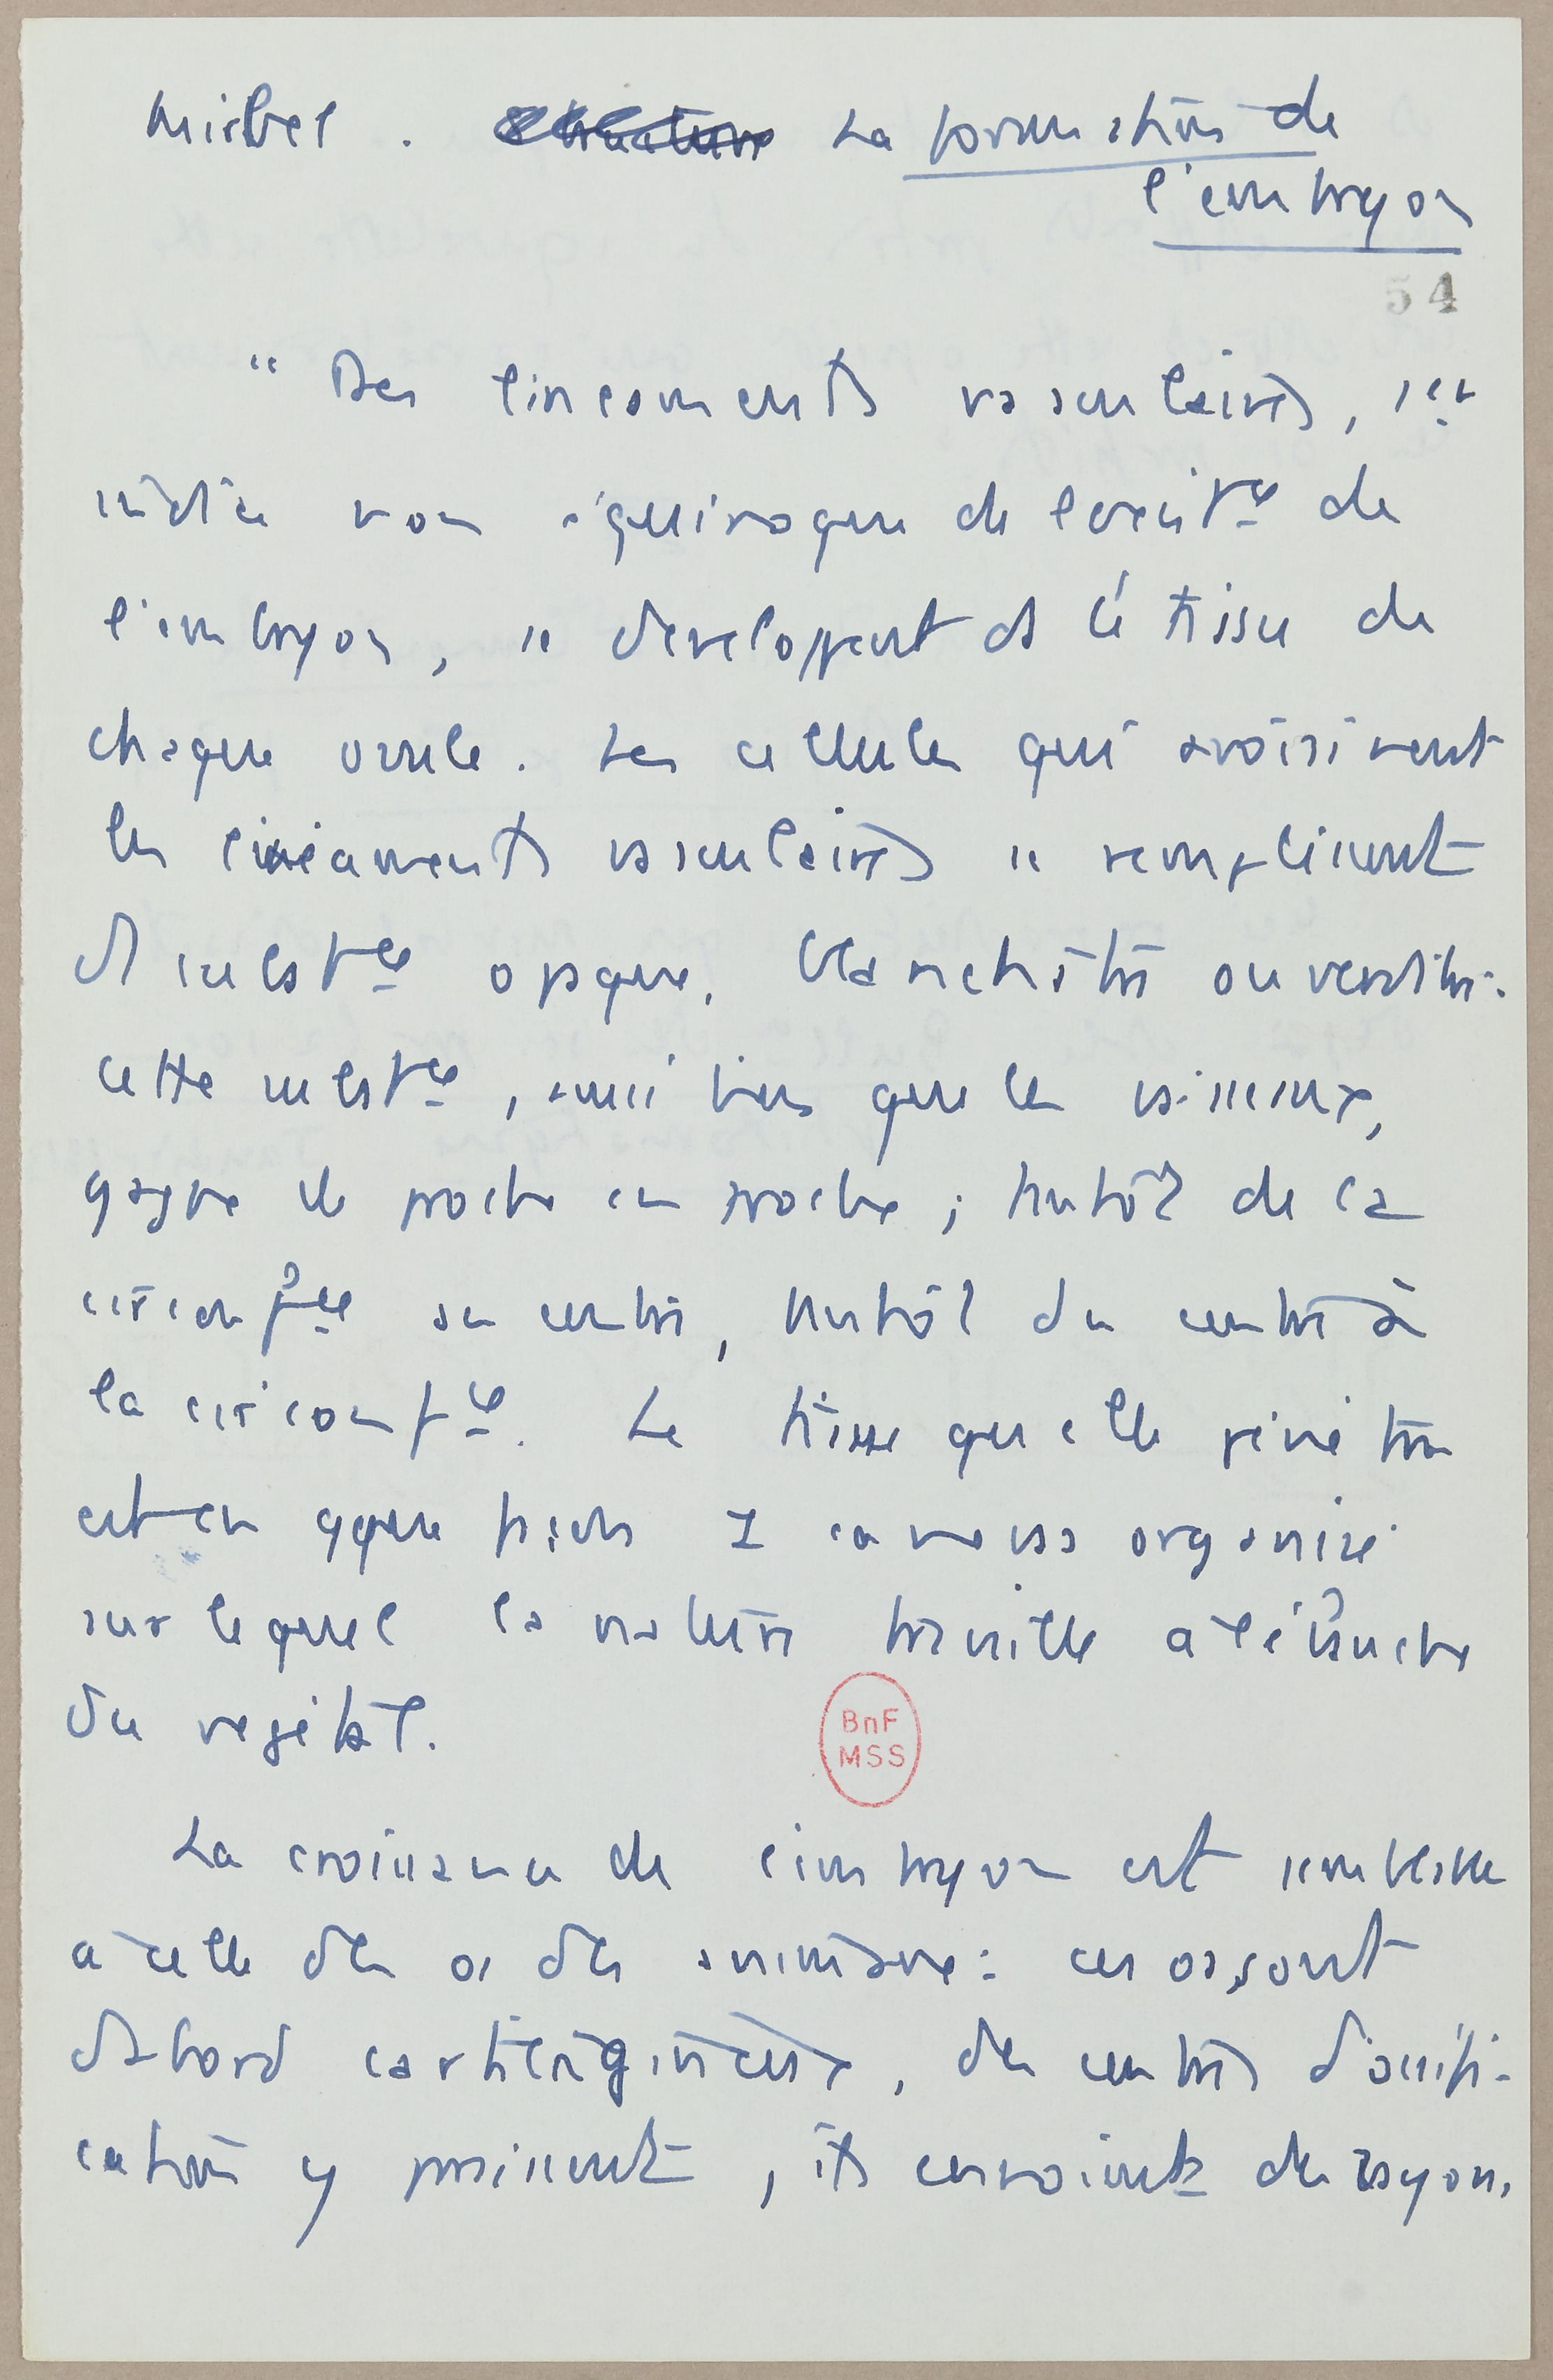 Mirbel . La formation de
l'embryon
54
" Des lineaments vasculaires, 1er
indice non équivoque de l'existce de
l'embryon, se developpent ds le tissu de
chaque ovule. Les cellules qui avoisinent
les linéaments vasculaires se remplissent
d'1 substce opaque, blanchâtre ou verdâtre.
Cette substce, aussi bien que les vaisseaux,
gagne de proche en proche ; tantôt de la
circonfce au centre, tantôt du centre à
la circonfce. Le tissu qu'elle pénètre
est en qque sorte 1 canevas organisé
sur lequel la nature travaille à l'ébauche
du végétal.
La croissance de l'embryon est semblable
à celle des os des animaux : ces os sont
d'abord cartilagineux, des centres d'ossifi-
cation y paraissent, ils envoient des rayons,
BnF
MSS